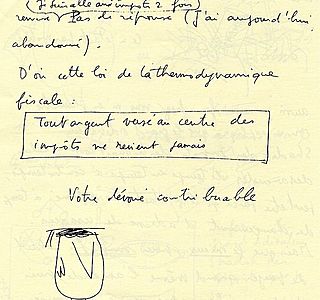 (Je suis allé aux impôts 2 fois)
Pas de réponse (J'ai aujourd'hui
abandonné).
D'où cette loi de la thermodynamique
fiscale :
Tout argent versé au centre des
impôts ne revient jamais
Votre dévoué contribuable